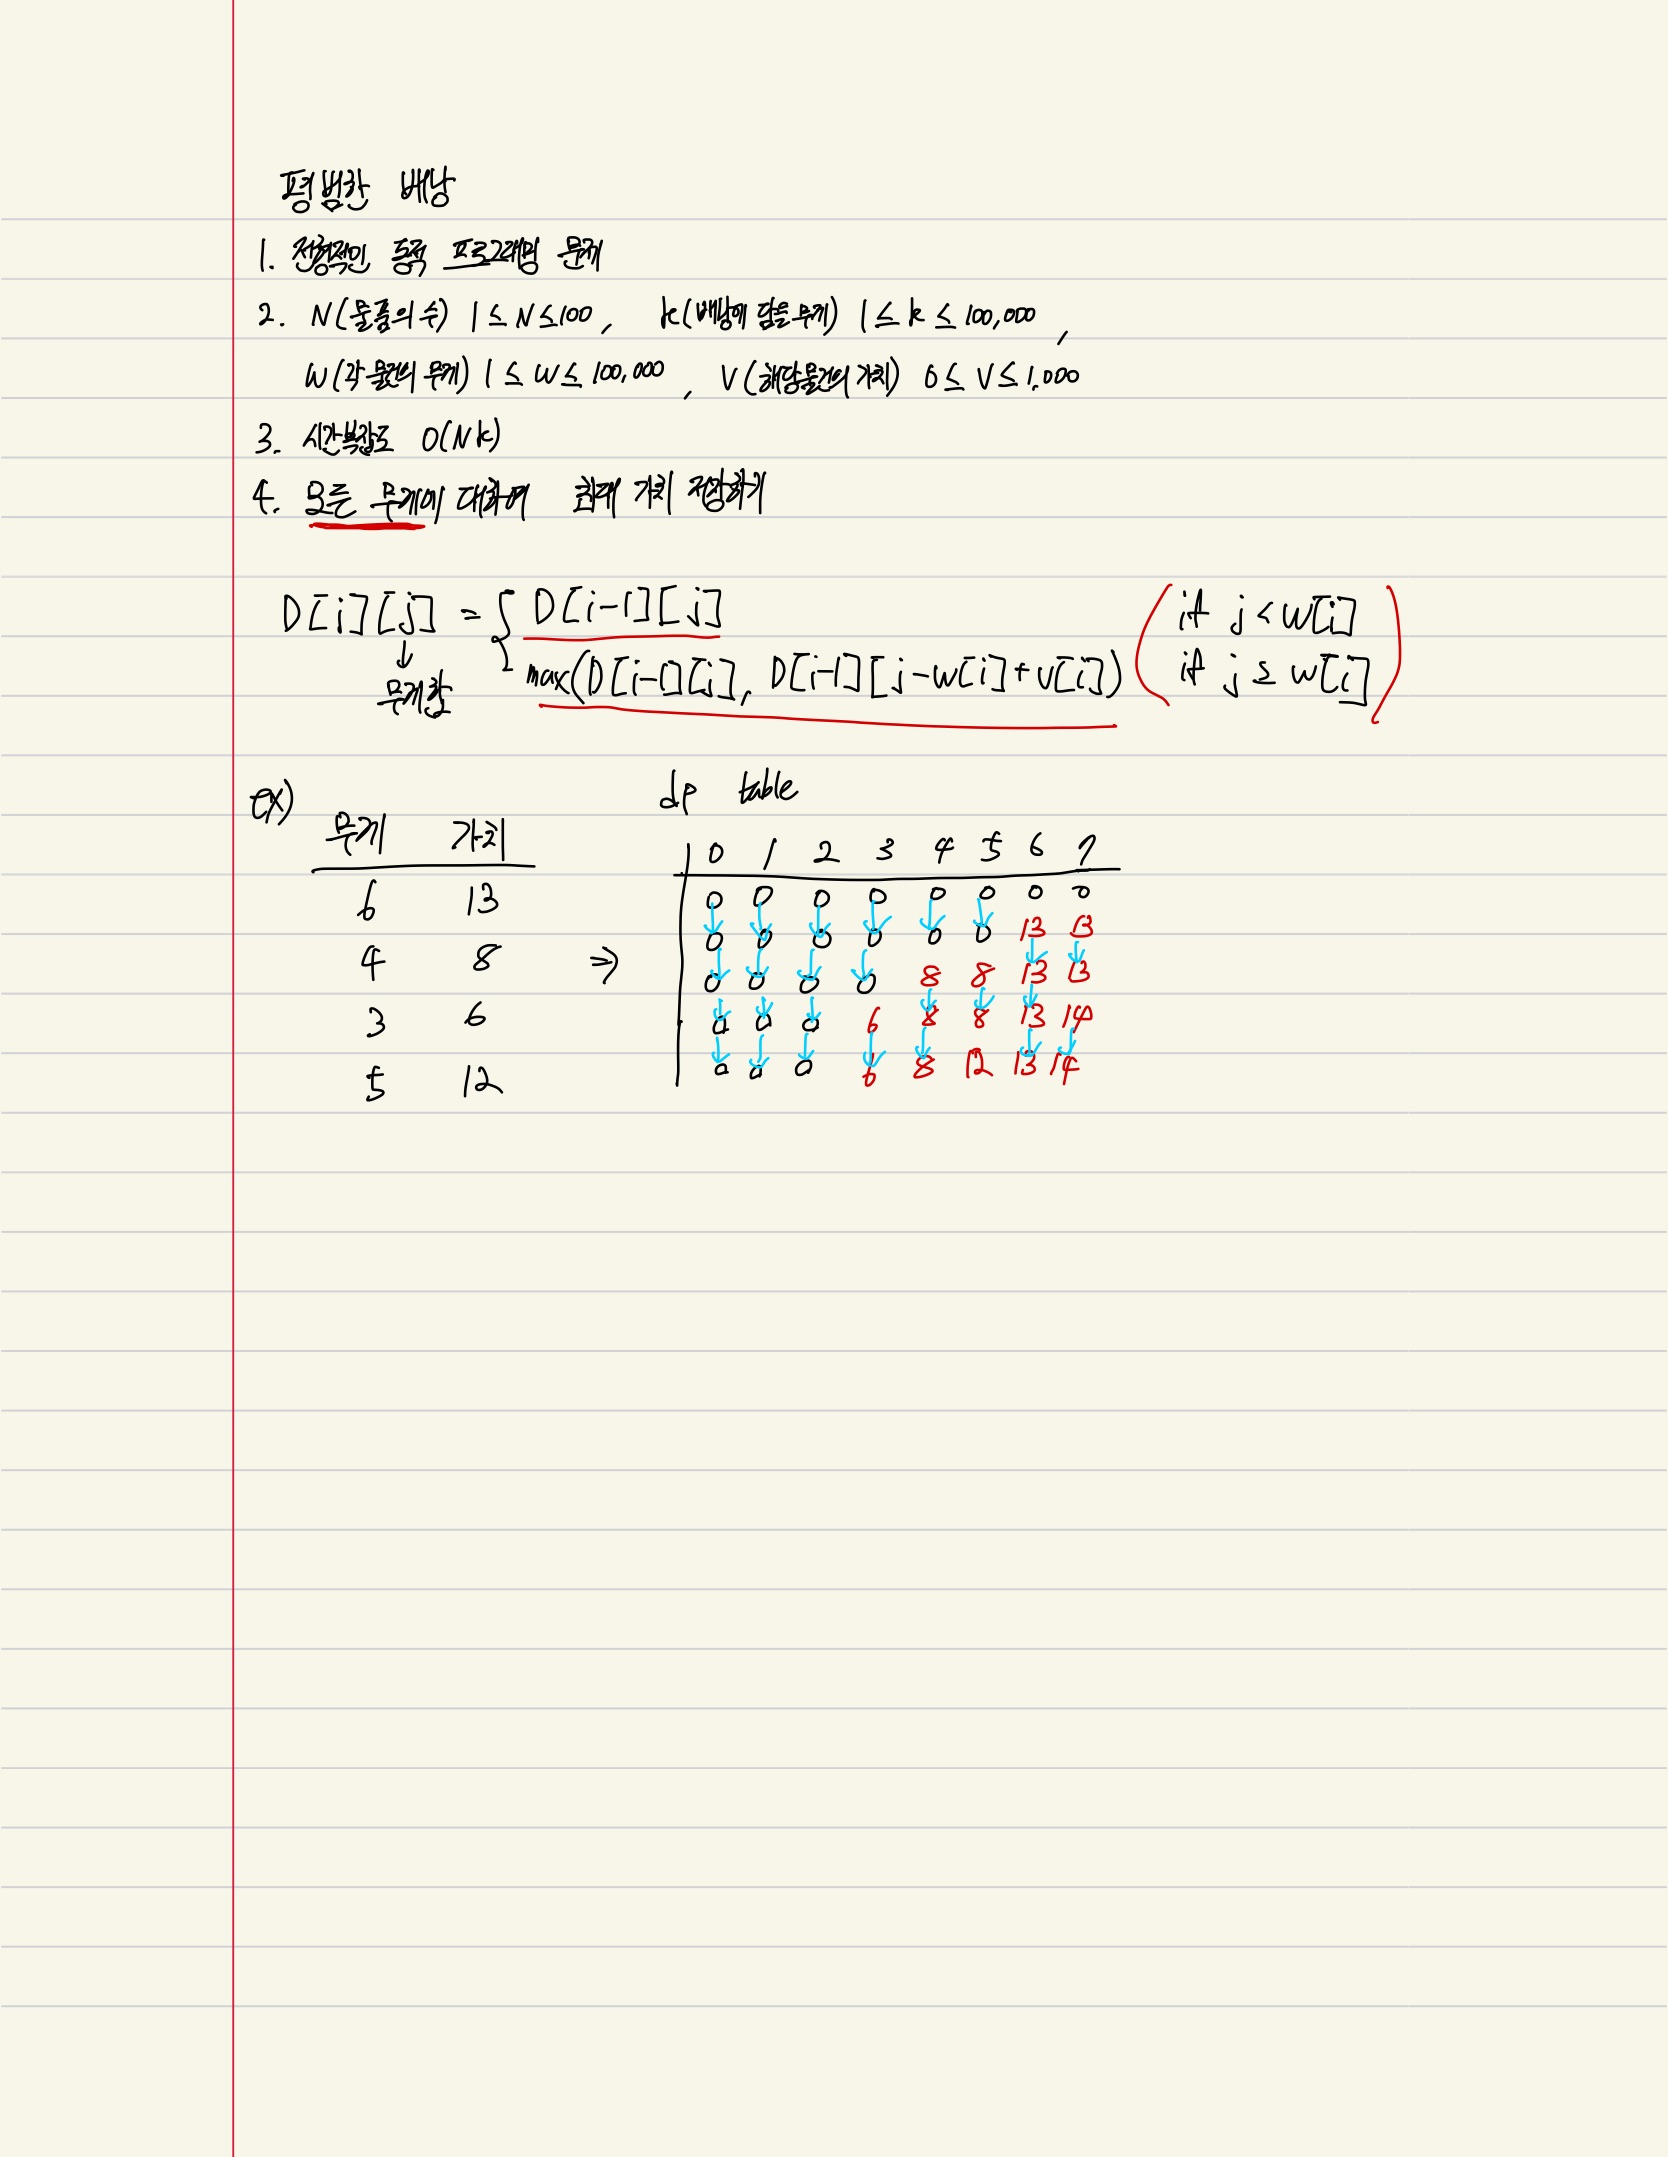 평범한 배낭
1. 전형적인 동적 프로그래밍 문제
2. N(물품의 수) 1 ≤ N ≤ 100, k(배낭에 담을 무게) 1 ≤ k ≤ 100,000,
W(각 물건의 무게) 1 ≤ W ≤ 100,000, V(해당물건의 가치) 0 ≤ V ≤ 1,000
3. 시간복잡도 O(Nk)
4. 모든 무게에 대하여 최대 가치 저장하기
D[i][j] = { D[i-1][j] (if j < w[i]
max(D[i-1][j], D[i-1][j-w[i]+v[i]) if j ≥ w[i])
↓
무게합
ex)
무게 가치
6 13
4 8
3 6
5 12
⇒
dp table
0 1 2 3 4 5 6 7
0 0 0 0 0 0 0 0
0 0 0 0 0 0 13 13
0 0 0 0 8 8 13 13
0 0 0 6 8 8 13 14
0 0 0 6 8 12 13 14